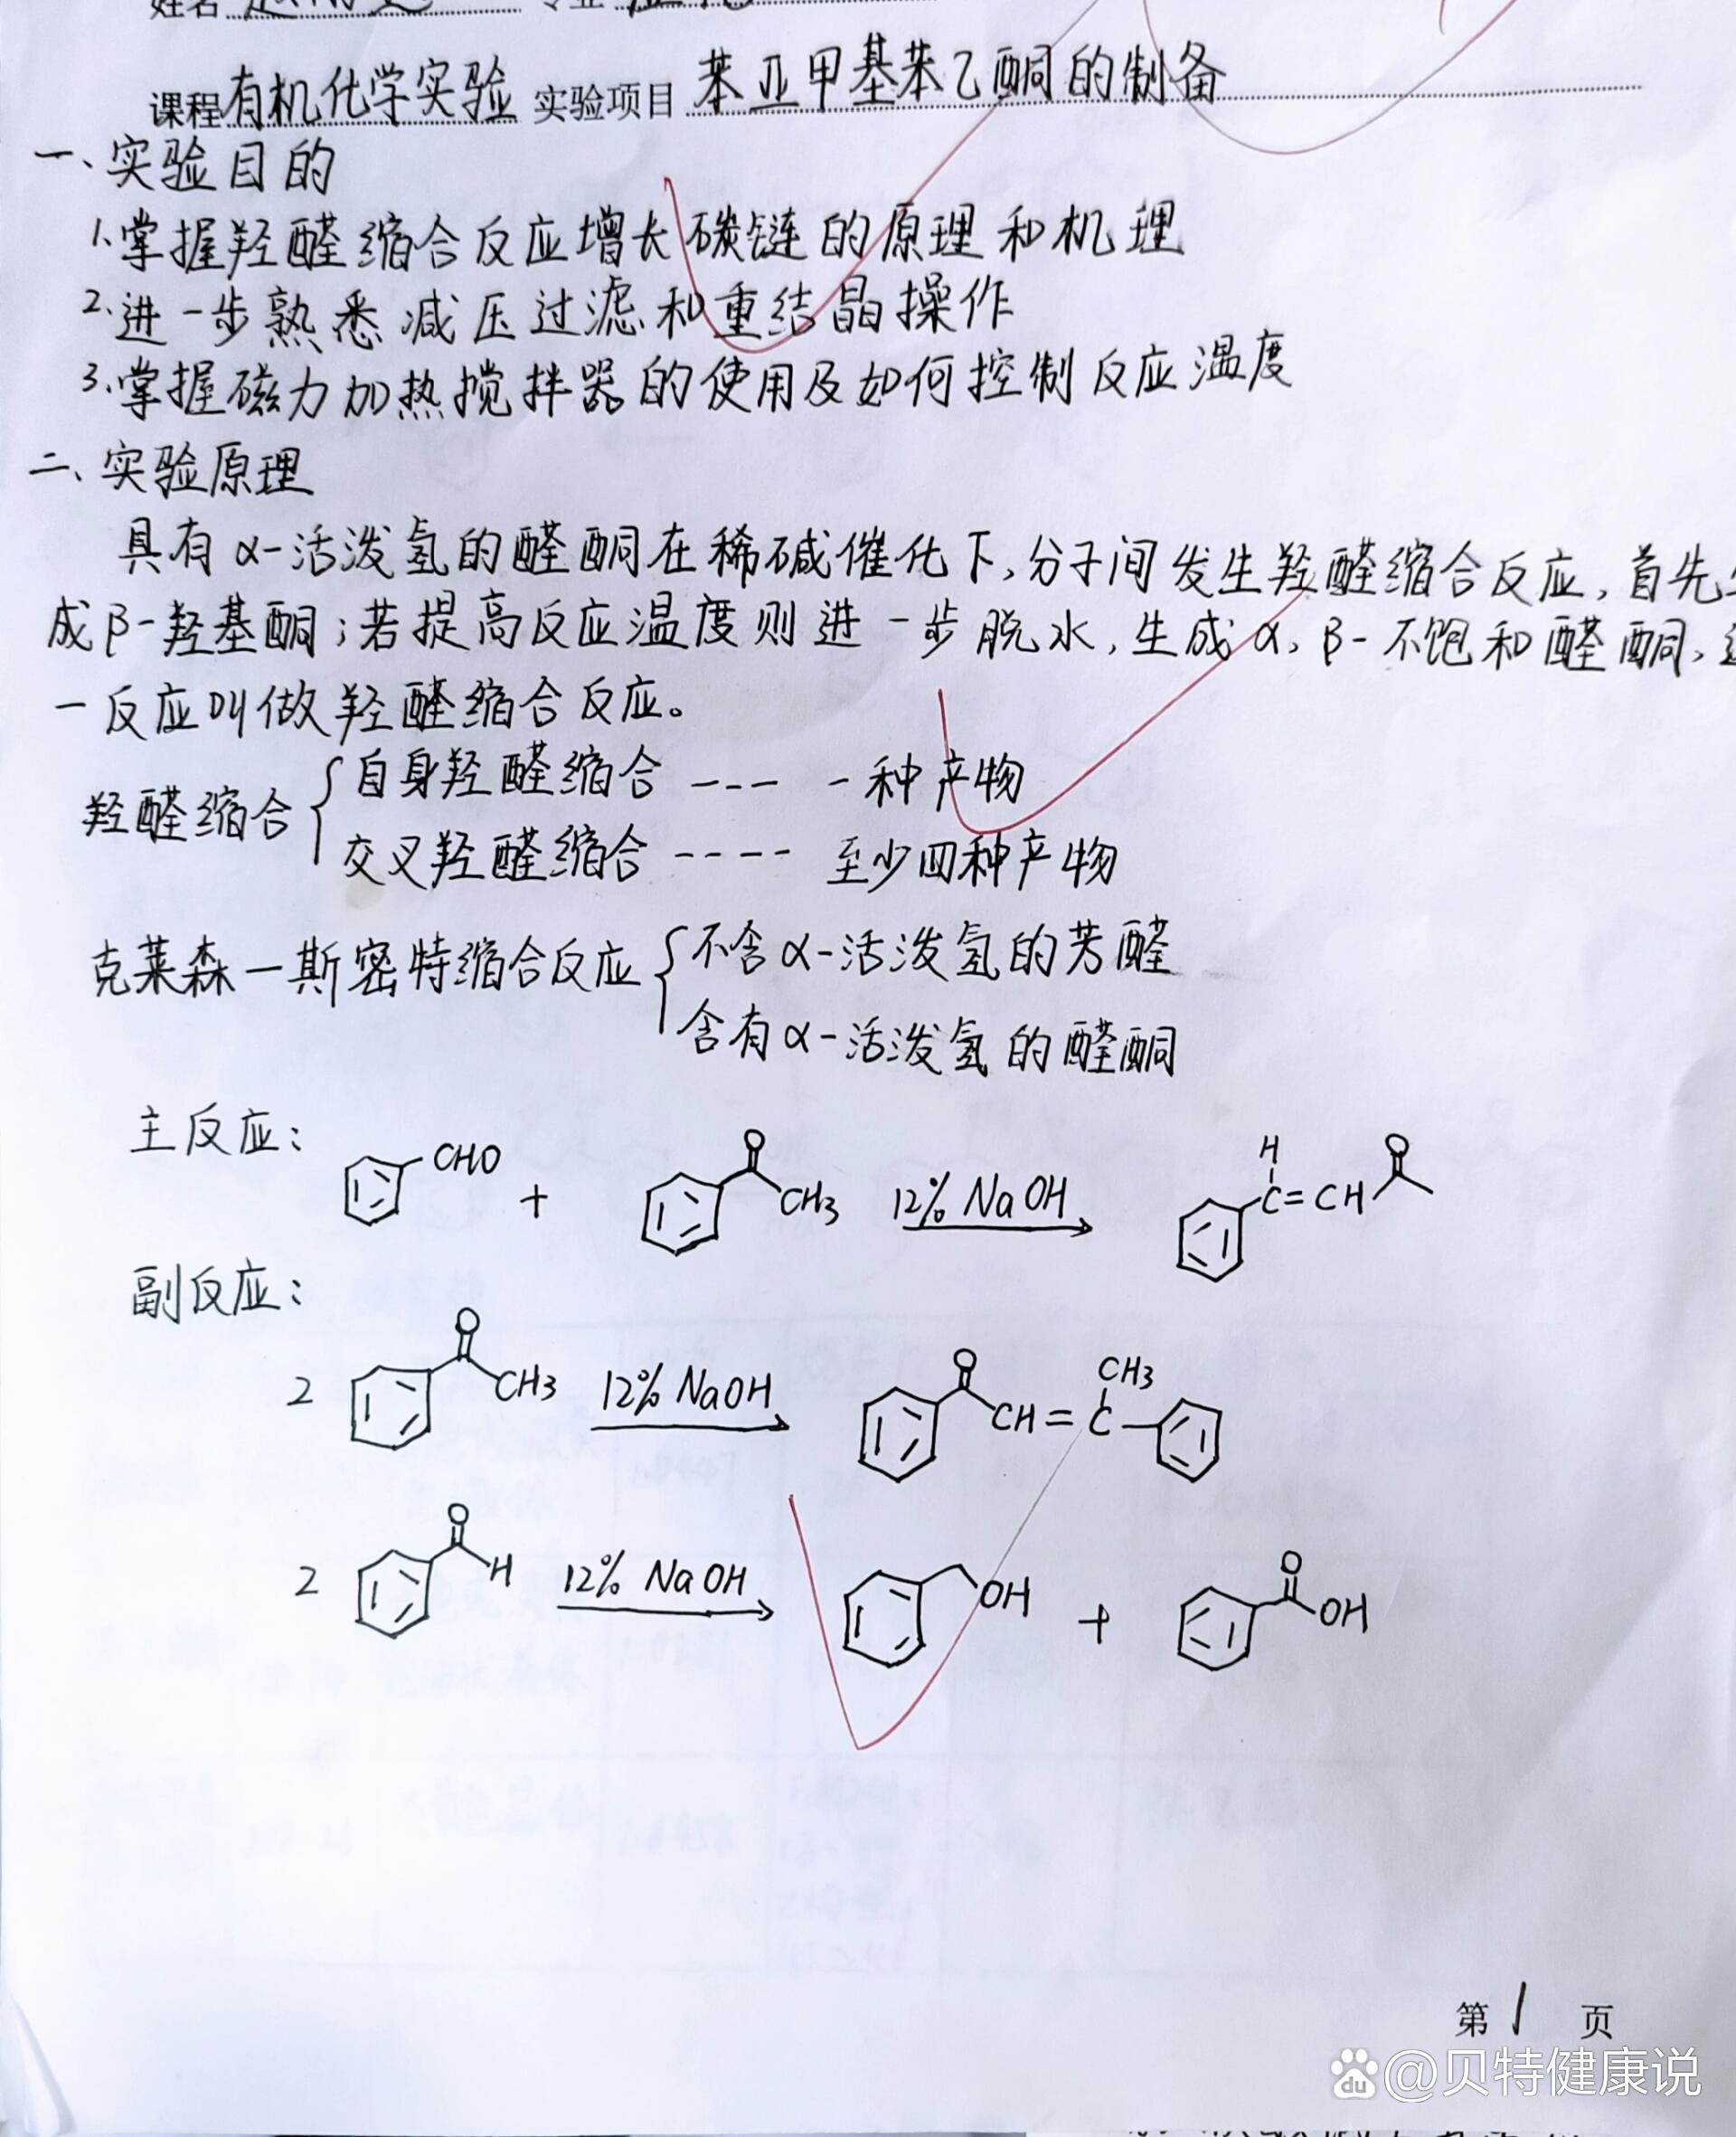 姓名 专业
课程 有机化学实验 实验项目 苯亚甲基苯乙酮的制备
一、实验目的
1.掌握羟醛缩合反应增长碳链的原理和机理
2.进一步熟悉减压过滤和重结晶操作
3.掌握磁力加热搅拌器的使用及如何控制反应温度
二、实验原理
具有α-活泼氢的醛酮在稀碱催化下,分子间发生羟醛缩合反应,首先
成β-羟基酮;若提高反应温度则进一步脱水,生成α,β-不饱和醛酮,
一反应叫做羟醛缩合反应。
羟醛缩合
自身羟醛缩合 --- 一种产物
交叉羟醛缩合 ---- 至少四种产物
克莱森—斯密特缩合反应
不含α-活泼氢的芳醛
含有α-活泼氢的醛酮
主反应:
CHO + O CH3 12% NaOH H C=CH O
副反应:
2 O CH3 12% NaOH O CH=C CH3
2 O H 12% NaOH OH + O OH
第 1 页
du @贝特健康说